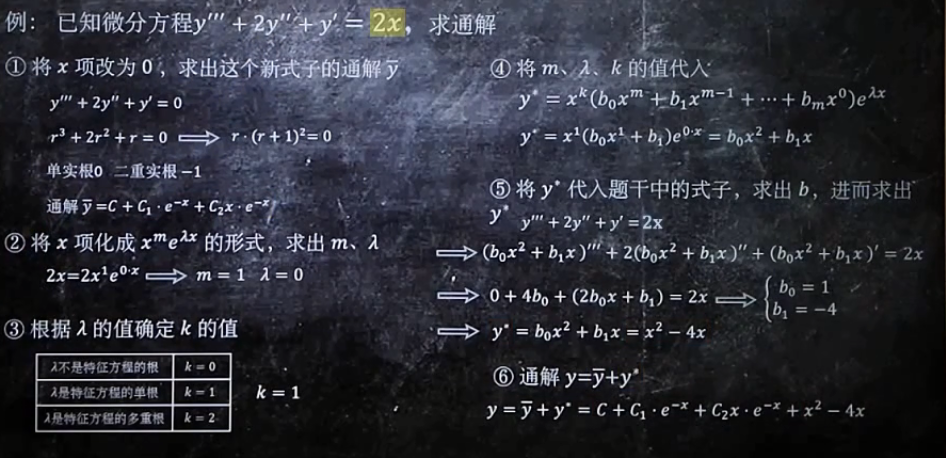 例： 已知微分方程y''' + 2y'' + y' = 2x，求通解
① 将 x 项改为 0，求出这个新式子的通解 ȳ
y''' + 2y'' + y' = 0
r³ + 2r² + r = 0 ⟹ r·(r + 1)² = 0
单实根0 二重实根 −1
通解 ȳ = C + C₁·e⁻ˣ + C₂x·e⁻ˣ
② 将 x 项化成 xᵐe^{λx} 的形式，求出 m、λ
2x=2x¹e^{0·x} ⟹ m = 1 λ = 0
③ 根据 λ 的值确定 k 的值
λ不是特征方程的根 k = 0
λ是特征方程的单根 k = 1
λ是特征方程的多重根 k = 2
k = 1
④ 将 m、λ、k 的值代入
y* = xᵏ(b₀xᵐ + b₁xᵐ⁻¹ + ⋯ + bₘx⁰)e^{λx}
y* = x¹(b₀x¹ + b₁)e^{0·x} = b₀x² + b₁x
⑤ 将 y* 代入题干中的式子，求出 b，进而求出
y* y''' + 2y'' + y' = 2x
⟹ (b₀x² + b₁x)''' + 2(b₀x² + b₁x)'' + (b₀x² + b₁x)' = 2x
⟹ 0 + 4b₀ + (2b₀x + b₁) = 2x ⟹ { b₀ = 1
b₁ = −4
⟹ y* = b₀x² + b₁x = x² − 4x
⑥ 通解 y=ȳ+y*
y = ȳ + y* = C + C₁·e⁻ˣ + C₂x·e⁻ˣ + x² − 4x